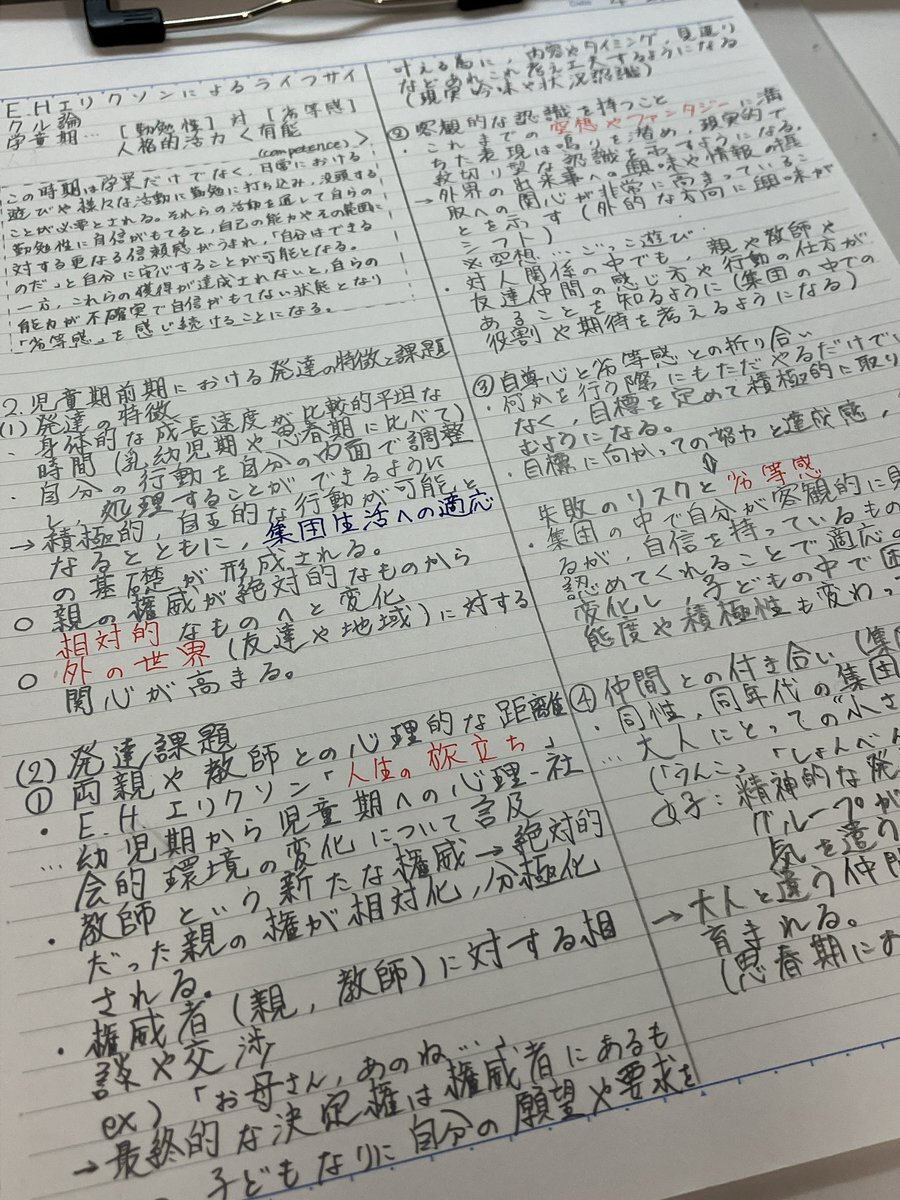 E.Hエリクソンによるライフサイ
クル論
学童期… [勤勉性] 対 [劣等感]
人格的活力<有能
(competence)>
この時期は学業だけでなく、日常における
遊びや様々な活動に勤勉に打ち込み、没頭する
ことが必要とされる。それらの活動を通して自らの
勤勉性に自信がもてると、自己の能力やその範囲に
対する更なる信頼感がうまれ、「自分はできる
のだ」と自分に安心することが可能となる。
一方、これらの獲得が達成されないと、自らの
能力が不確実で自信がもてない状態となり
「劣等感」を感じ続けることになる。
2.児童期前期における発達の特徴と課題
(1)発達の特徴
・身体的な成長速度が比較的平坦な
時間(乳幼児期や思春期に比べて)
・自分の行動を自分の内面で調整
し、処理することができるように
→積極的、自主的な行動が可能と
なるとともに、集団生活への適応
の基礎が形成される。
○親の権威が絶対的なものから
相対的なものへと変化
○外の世界(友達や地域)に対する
関心が高まる。
(2)発達課題
①両親や教師との心理的な距離
・E.H.エリクソン「人生の旅立ち」
…幼児期から児童期への心理-社
会的環境の変化について言及
・教師という新たな権威→絶対的
だった親の権が相対化、分極化
される。
・権威者(親、教師)に対する相
談や交渉
ex)「お母さん、あのね…」
→最終的な決定権は権威者にあるも
子どもなりに自分の願望や要求を
叶える為に、内容やタイミング、見返り
などあれこれ考え工夫するようになる
(現実吟味や状況認識)
②客観的な認識を持つこと
・これまでの空想やファンタジーに満
ちた表現は鳴りを潜め、現実的で
紋切り型な認識を示すようになる。
→外界の出来事への興味や情報の摂
取への関心が非常に高まっているこ
とを示す(外的な方向に興味が
シフト)
※空想…ごっこ遊び
・対人関係の中でも、親や教師や
友達仲間の感じ方や行動の仕方が
あることを知るように(集団の中での
役割や期待を考えるようになる)
③自尊心と劣等感との折り合い
・何かを行う際にもただやるだけで
なく、目標を定めて積極的に取り
むようになる。
・目標に向かっての努力と達成感、
⇕
失敗のリスクと劣等感
・集団の中で自分が客観的に見
るが、自信を持っているもの
認めてくれることで適応の
変化し、子どもの中で困
態度や積極性も変わっ
④仲間との付き合い(集団
・同性、同年代の集団
…大人にとっての"小さ
(「うんこ」「しょんべん
女子:精神的な発
グループが
気を遣う
→大人と違う仲間
育まれる。
(思春期にお